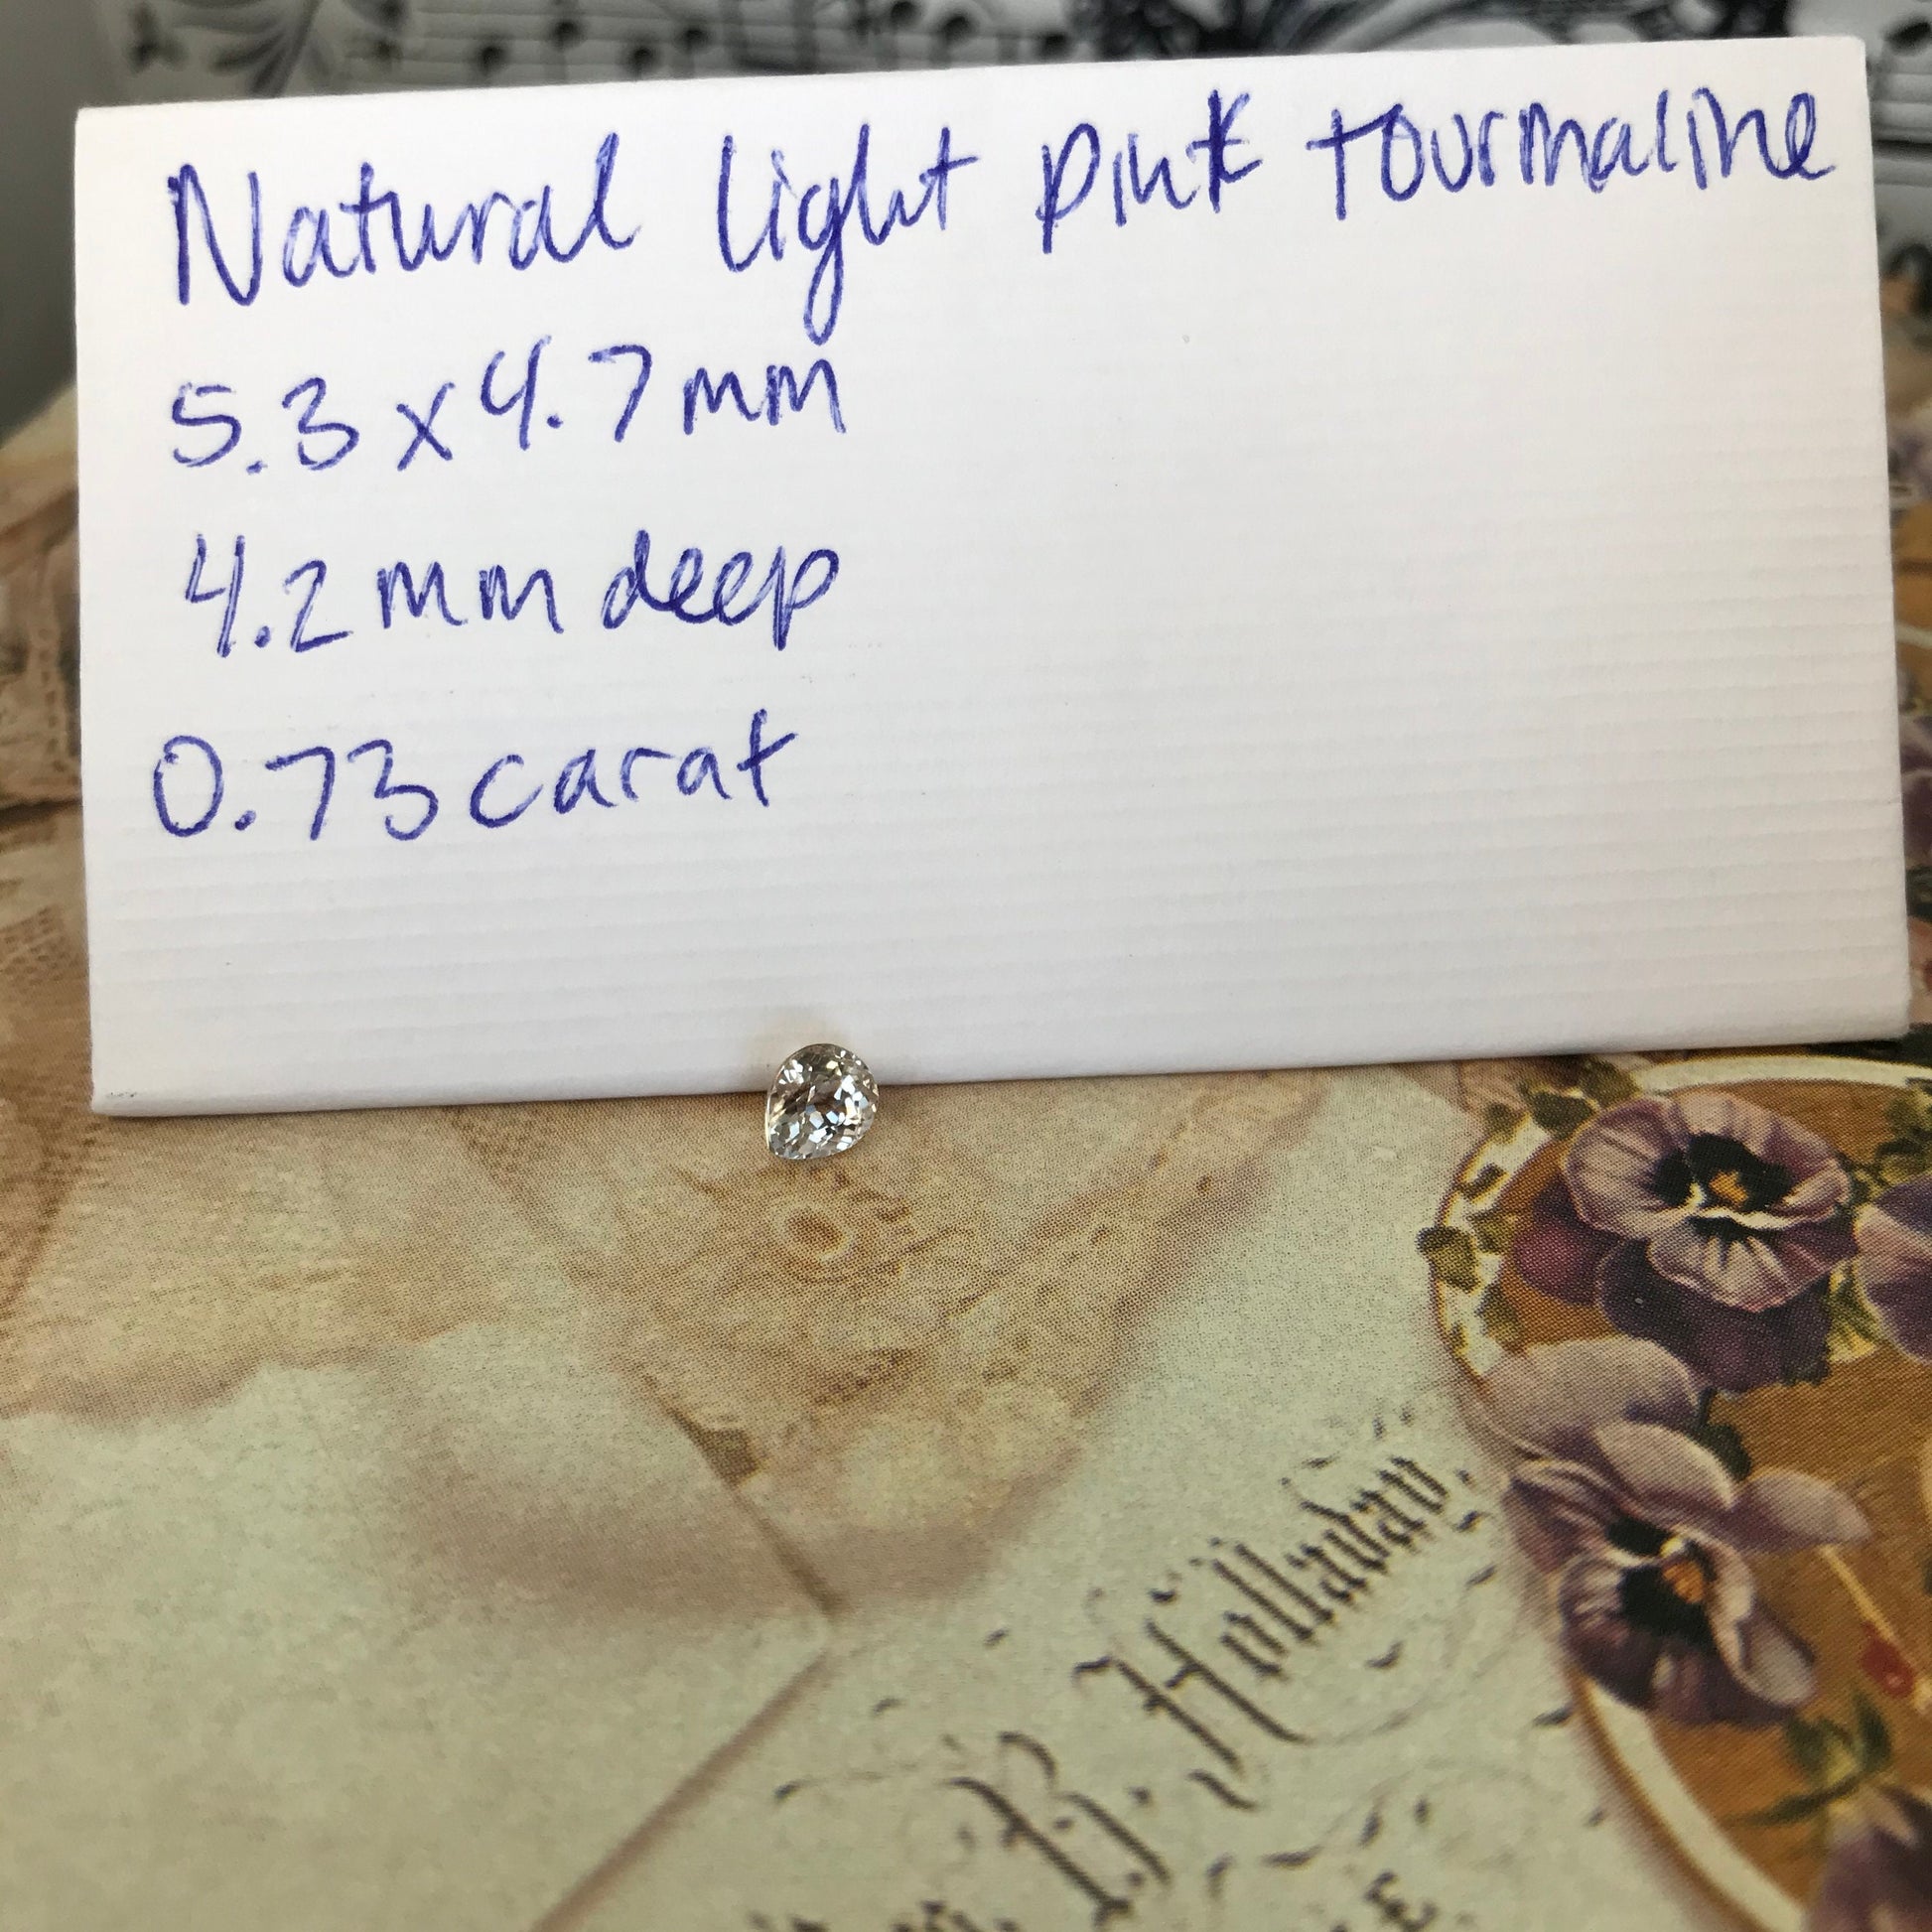 Natural light pink tourmaline
5.3 x 4.7 mm
4.2 mm deep
0.73 carat
B. Hollaway.